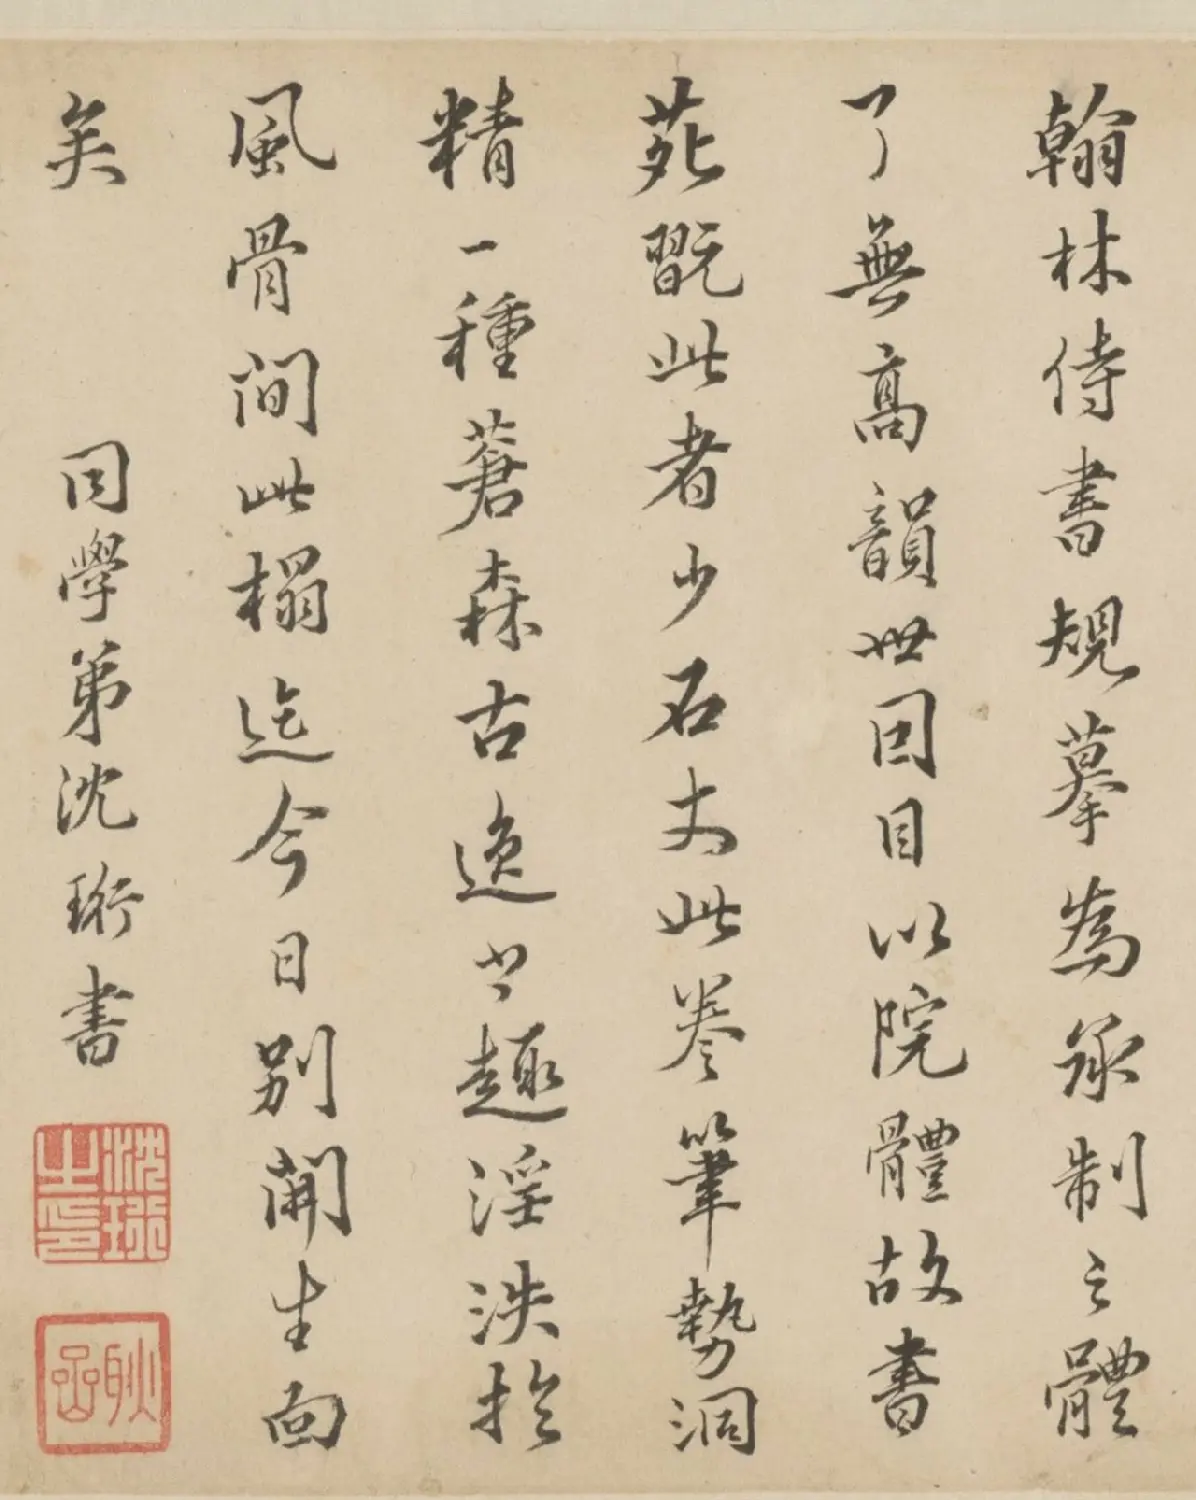 翰林侍書規摹為承制之體
了無高韻世因目以院體故書
苑翫此者少石丈此卷筆勢洞
精一種蒼森古逸之趣淫泆於
風骨間此榻迄今日別開生面
矣
同學弟沈珩書
沈珩之印
耿嵒